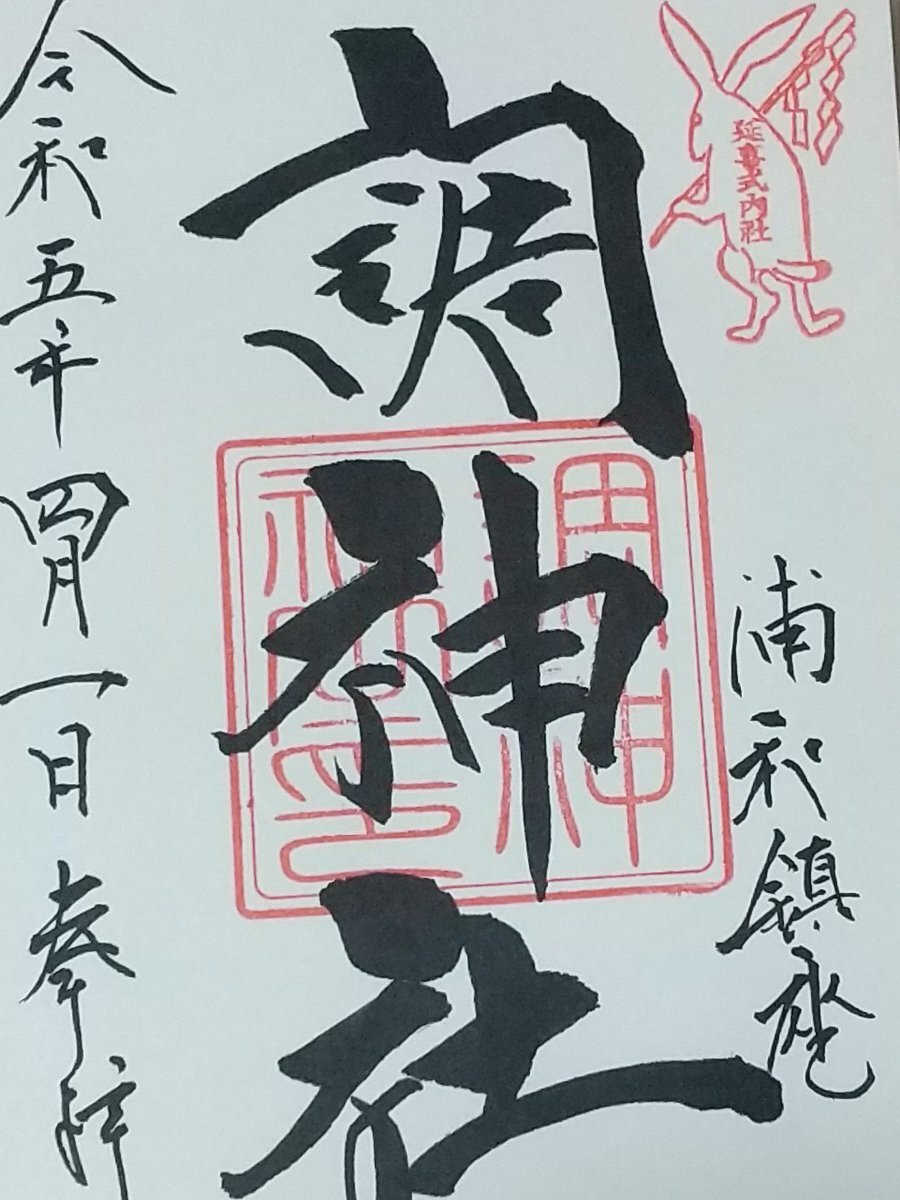 延喜式内社
浦和鎮座
調神社
調神
社之印
令和五年四月一日奉拝